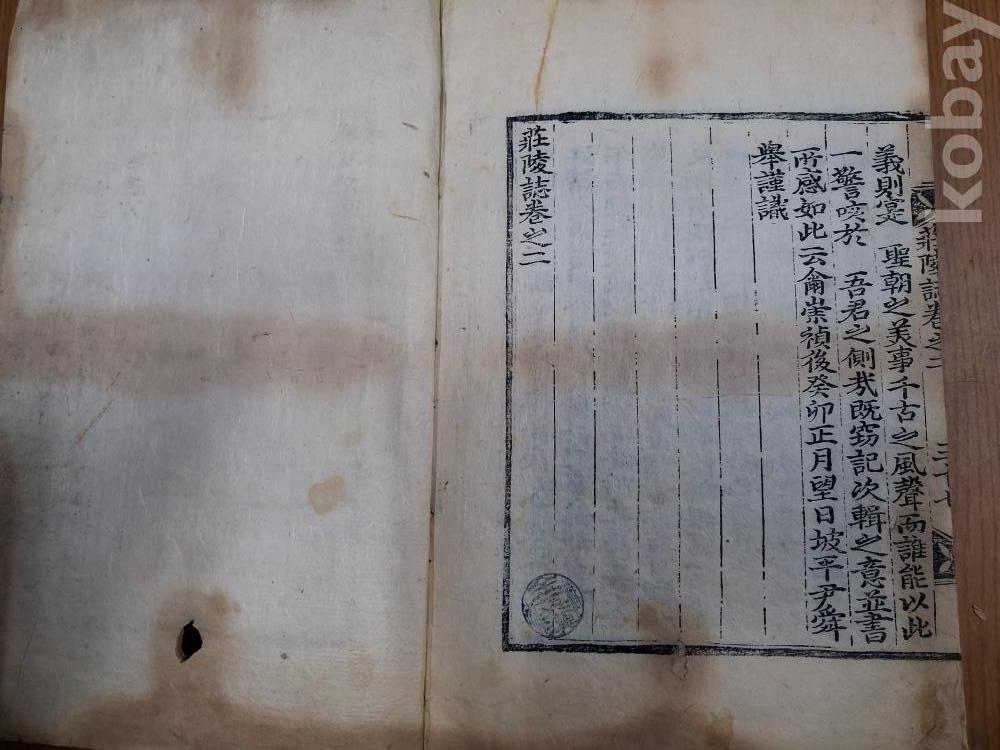 莊陵誌卷之二
三十七
義則寔 聖朝之美事千古之風聲而誰能以此
一警咳於 吾君之側哉既竊記次輯之意並書
所感如此云爾崇禎後癸卯正月望日坡平尹舜
舉謹識
莊陵誌卷之二
kobay